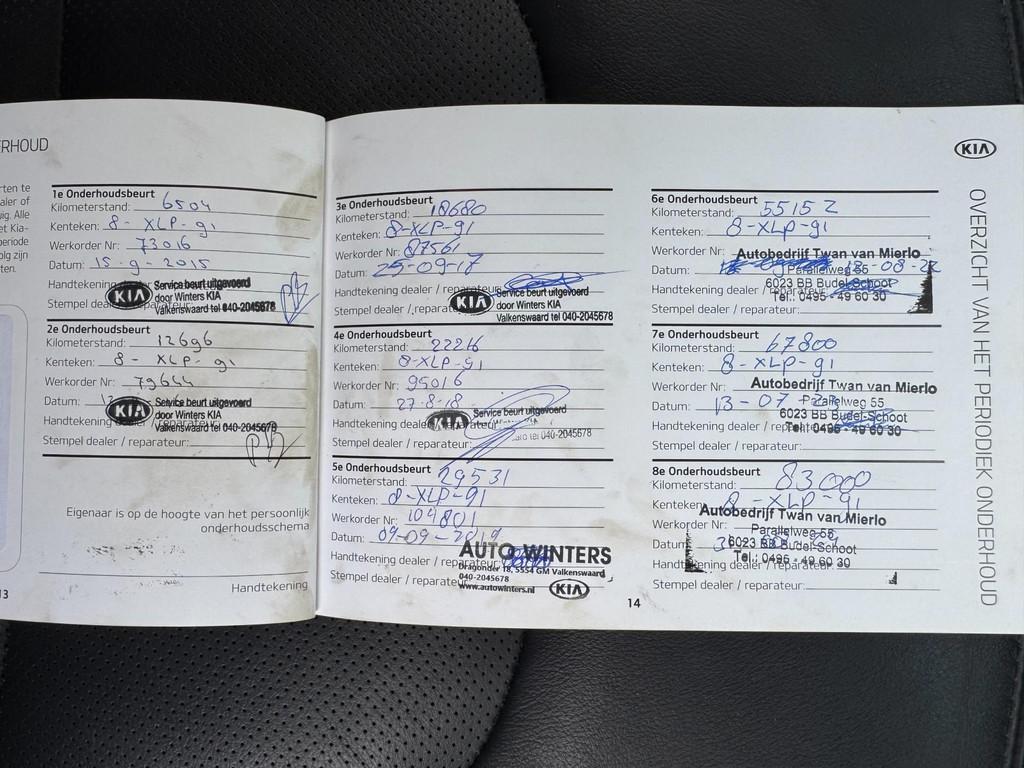 RHOUD
rten te
aler of
ig. Alle
et Kia-
periode
olg zijn
ten.
1e Onderhoudsbeurt
Kilometerstand: 6504
Kenteken: 8-XLP-91
Werkorder Nr: 73016
Datum: 15-9-2015
Handtekening
KIA Service beurt uitgevoerd
door Winters KIA
Valkenswaard tel 040-2045678
Stempel dealer / reparateur:
2e Onderhoudsbeurt
Kilometerstand: 12696
Kenteken: 8-XLP-91
Werkorder Nr: 79644
Datum:
KIA Service beurt uitgevoerd
door Winters KIA
Valkenswaard tel 040-2045678
Handtekening dealer / reparateur:
Stempel dealer / reparateur:
Eigenaar is op de hoogte van het persoonlijk
onderhoudsschema
Handtekening
13
3e Onderhoudsbeurt
Kilometerstand: 18680
Kenteken: 8-XLP-91
Werkorder Nr: 87561
Datum: 25-09-17
Handtekening dealer / reparateur:
KIA Service beurt uitgevoerd
door Winters KIA
Valkenswaard tel 040-2045678
Stempel dealer / reparateur:
4e Onderhoudsbeurt
Kilometerstand: 22216
Kenteken: 8-XLP-91
Werkorder Nr: 95016
Datum: 27-8-18
Handtekening dealer / reparateur:
KIA Service beurt uitgevoerd
tel 040-2045678
Stempel dealer / reparateur:
5e Onderhoudsbeurt
Kilometerstand: 29531
Kenteken: 8-XLP-91
Werkorder Nr: 104801
Datum: 09-09-2019
AUTO WINTERS
Handtekening dealer / reparateur:
Dragonder 18, 5554 GM Valkenswaard
040-2045678
Stempel dealer / reparateur:
www.autowinters.nl KIA
14
KIA
6e Onderhoudsbeurt
Kilometerstand: 55152
Kenteken: 8-XLP-91
Werkorder Nr:
Autobedrijf Twan van Mierlo
Datum:
Parallelweg 55
6023 BB Budel-Schoot
Tel.: 0495 - 49 60 30
Handtekening dealer / reparateur:
Stempel dealer / reparateur:
7e Onderhoudsbeurt
Kilometerstand: 67800
Kenteken: 8-XLP-91
Werkorder Nr:
Autobedrijf Twan van Mierlo
Datum: 13-07
Parallelweg 55
6023 BB Budel-Schoot
Handtekening dealer / reparateur:
Tel.: 0495 - 49 60 30
Stempel dealer / reparateur:
8e Onderhoudsbeurt
Kilometerstand: 83000
Kenteken: 8-XLP-91
Autobedrijf Twan van Mierlo
Werkorder Nr:
Parallelweg 55
Datum:
6023 BB Budel-Schoot
Tel.: 0495 - 49 60 30
Handtekening dealer / reparateur:
Stempel dealer / reparateur:
OVERZICHT VAN HET PERIODIEK ONDERHOUD